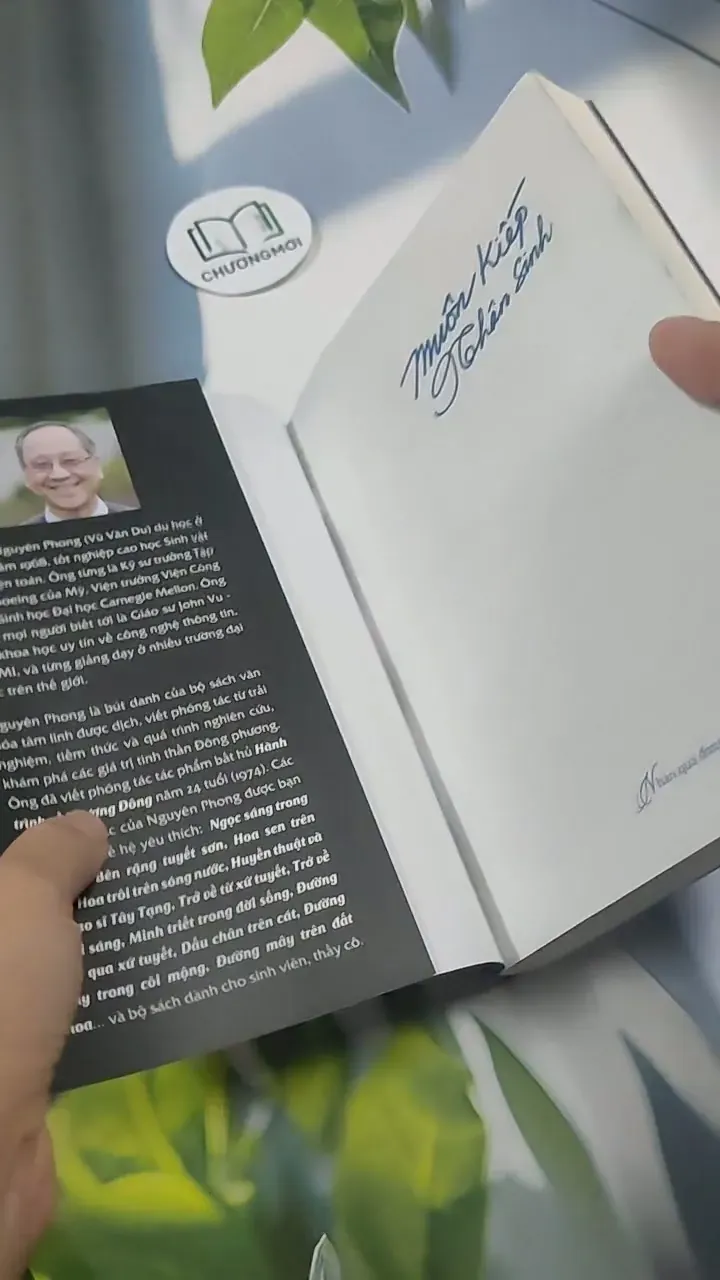 CHƯƠNG MỚI
Muôn Kiếp
Nhân Sinh
Nguyên Phong (Vũ Văn Du) du học ở
năm 1968, tốt nghiệp cao học Sinh vật
toán. Ông từng là Kỹ sư trưởng Tập
Boeing của Mỹ, Viện trưởng Viện Công
Sinh học Đại học Carnegie Mellon. Ông
mọi người biết tới là Giáo sư John Vu -
khoa học uy tín về công nghệ thông tin,
và từng giảng dạy ở nhiều trường đại
trên thế giới.
Nguyên Phong là bút danh của bộ sách văn
hóa tâm linh được dịch, viết phóng tác từ trải
nghiệm, tiềm thức và quá trình nghiên cứu,
khám phá các giá trị tinh thần Đông phương.
Ông đã viết phóng tác tác phẩm bất hủ Hành
trình Đông năm 24 tuổi (1974). Các
của Nguyên Phong được bạn
hệ yêu thích: Ngọc sáng trong
Bên rặng tuyết sơn, Hoa sen trên
Hoa trôi trên sóng nước, Huyền thuật và
sĩ Tây Tạng, Trở về từ xứ tuyết, Trở về
sáng, Minh triết trong đời sống, Đường
qua xứ tuyết, Dấu chân trên cát, Đường
trong cõi mộng, Đường mây trên đất
hoa... và bộ sách dành cho sinh viên, thầy cô.
Nhân quả